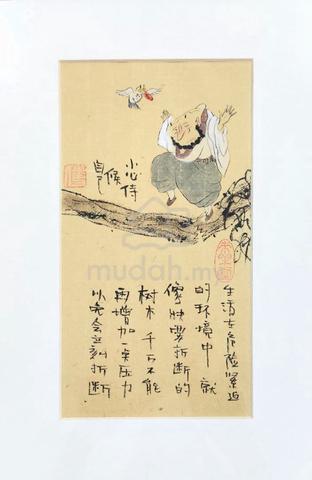 小心侍
候
自己
生活在危险紧迫
的环境中 就
像快要折断的
树木 千万不能
再增加一点压力
以免会立刻折断
mudah.my